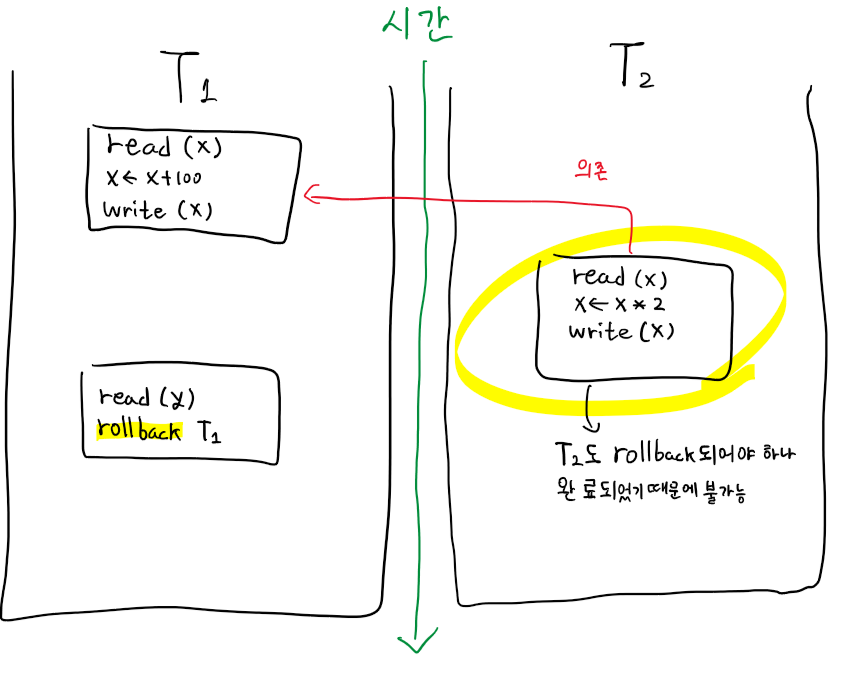 시간
T1
read (x)
x ← x+100
write (x)
read (y)
rollback T1
T2
의존
read (x)
x ← x * 2
write (x)
T2도 rollback되어야 하나
완료되었기때문에 불가능